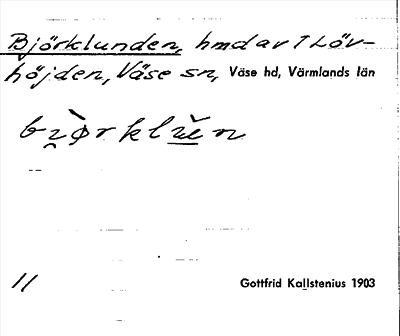 Björklunden, hmd av 1 Löv-
höjden, Väse sn, Väse hd, Värmlands län
11 Gottfrid Kallstenius 1903